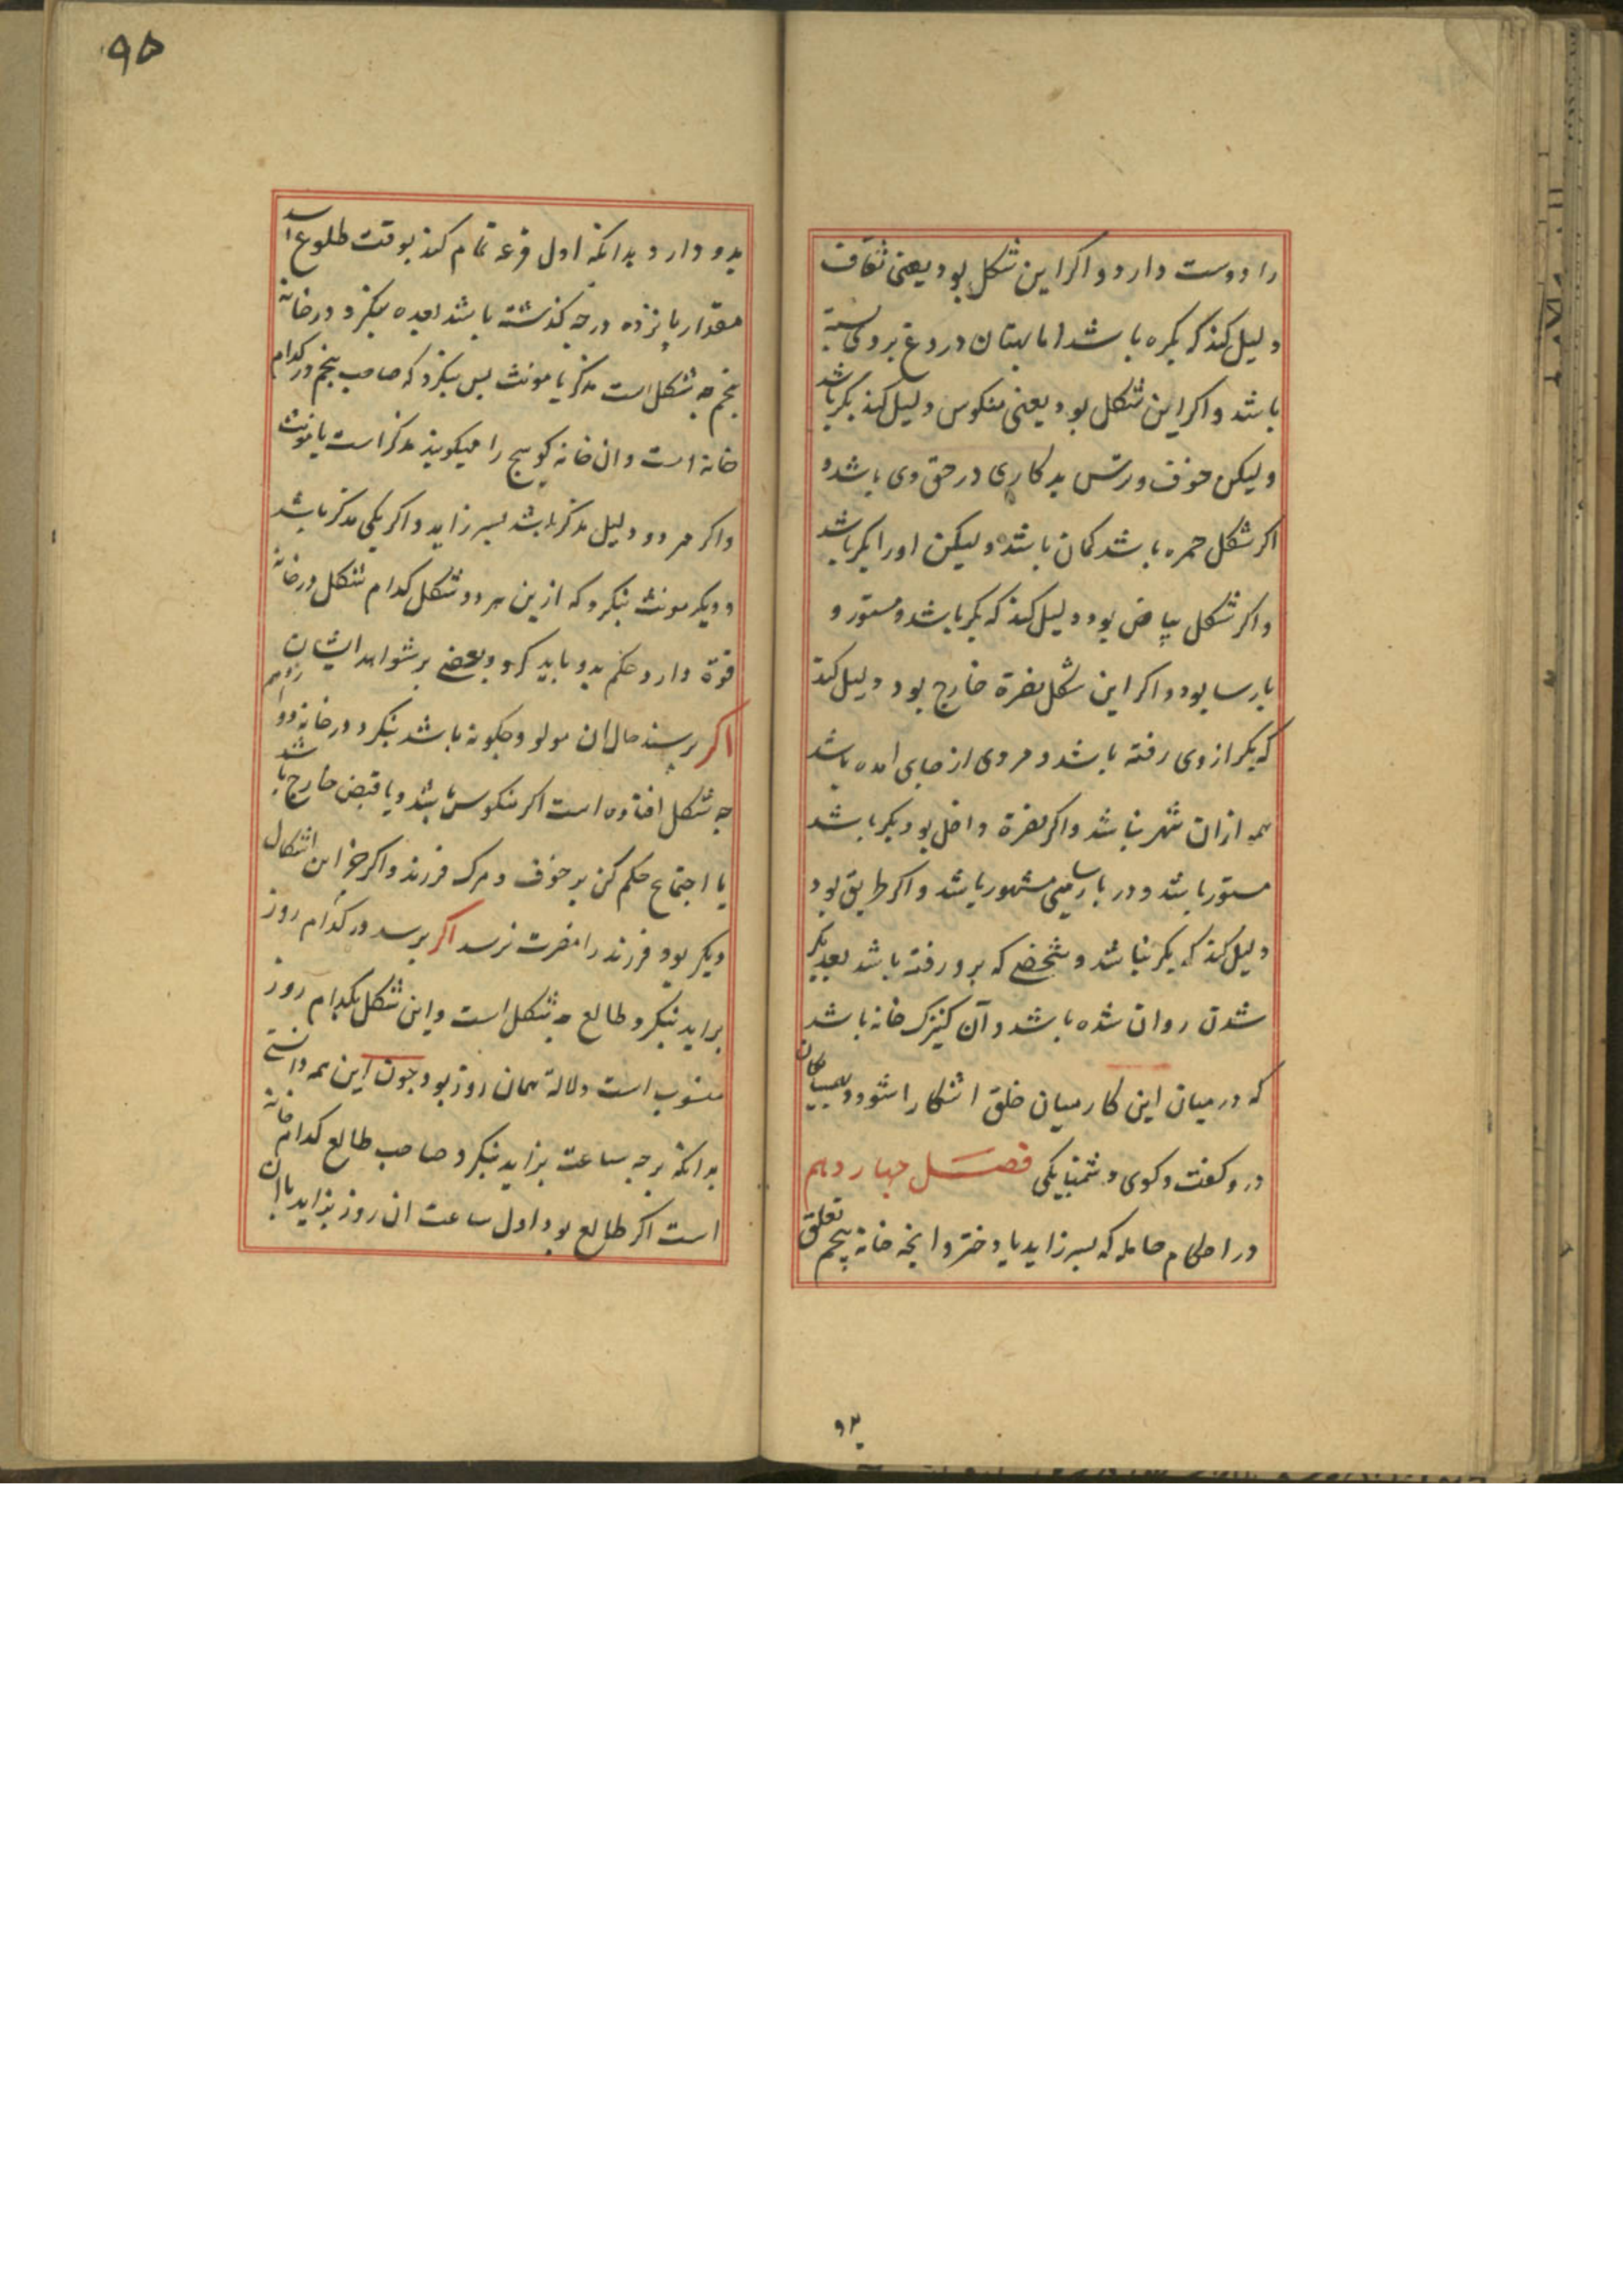 را دوست دارد و اکر این شکل بود یعنی ثقاف
دلیل کند که بکره باشد اما بهتان دروغ بر وی بسته
باشد و اکر این شکل بود یعنی منکوس دلیل کند بکر باشد
ولیکن خوف و ترس بدکاری در حق وی باشد و
اکر شکل حمره باشد کمان باشد ولیکن او را بکر باشد
و اکر شکل بیاض بود دلیل کند که بکر باشد و مستور و
بارسا بود و اکر این شکل نصرة خارج بود دلیل کند
که بکر از وی رفته باشد و مردی از جای آمده باشد
هم از ان شهر نباشد و اکر نصرة داخل بود بکر باشد
مستور باشد و در بارسایی مشهور باشد و اکر طریق بود
دلیل کند که بکر نباشد و شخصی که برو رفته باشد بعد بکر
شدن روان شده باشد و آن کنیزک خانه باشد
که در میان این کار میان خلق اشکارا شود و
در و کفت و کوی و فصل جهاردهم
در احکام حامله که بسر زاید یا دختر و انجه خانه بنجم تعلق
۹۲
۹۵
بدو دارد بدانکه اول قرعه تمام کند بوقت طلوع اسد
مقدار بانزده درجه کذشته باشد بعده بنکرد در خانه
بنجم جه شکل است مذکر یا مونث بس بنکرد که صاحب بنجم در کدام
خانه است و ان خانه کوسج را میکویند مذکر است یا مونث
و اکر هر دو دلیل مذکر باشد بسر زاید و اکر یکی مذکر باشد
و دیکر مونث بنکرد که ازین هر دو شکل کدام شکل در خانه
قوة دارد حکم بدو باید کرد و بعضی بر شواهد ایشان
اکر برسند حال ان مولود جکونه باشد بنکرد در خانه دوازدهم
جه شکل افتاده است اکر منکوس باشد و یا قبض خارج باشد
یا اجتماع حکم کن بر خوف و مرک فرزند و اکر جز این اشکال
دیکر بود فرزند را مضرت نرسد اکر برسد در کدام روز
براید بنکرد طالع جه شکل است و این شکل بکدام روز
منسوب است دلالة همان روز بود جون این همه دانستی
بدانکه بر جه ساعت بزاید بنکرد صاحب طالع کدام خانه
است اکر طالع بود اول ساعت ان روز بزاید با ان